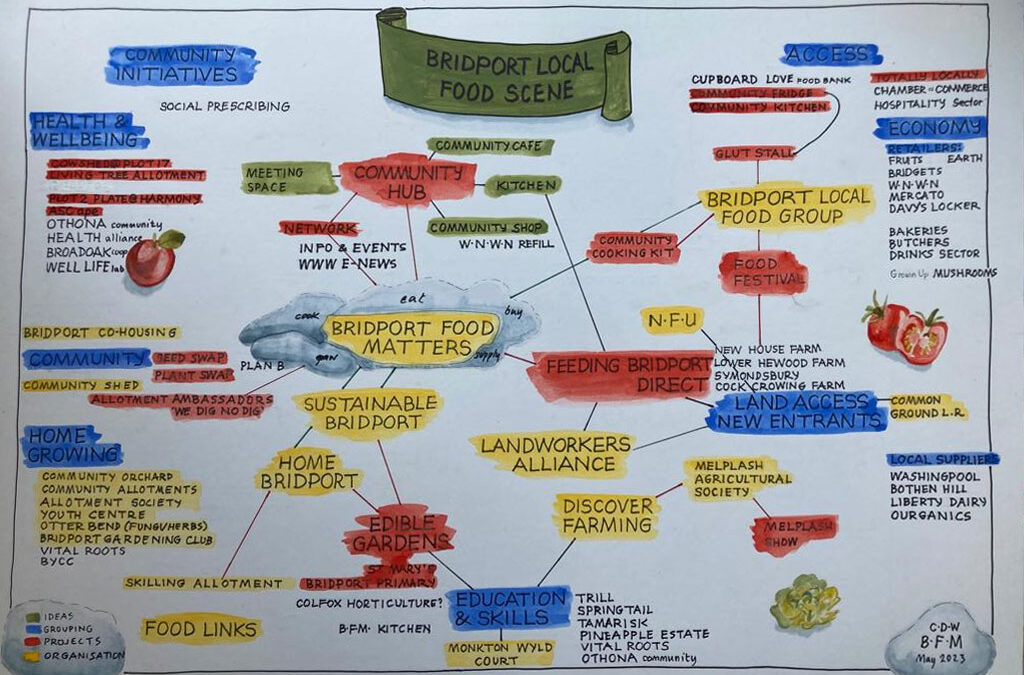 BRIDPORT LOCAL
FOOD SCENE
COMMUNITY
INITIATIVES
SOCIAL PRESCRIBING
HEALTH &
WELLBEING
COWSHED@PLOT 17
LIVING TREE ALLOTMENT
PLOT 2 PLATE@HARMONY
ASCape
OTHONA community
HEALTH alliance
BROADOAK coop
WELL LIFE lab
MEETING
SPACE
COMMUNITY
HUB
COMMUNITY CAFE
KITCHEN
COMMUNITY SHOP
W·N·W·N REFILL
NETWORK
INFO & EVENTS
WWW E-NEWS
ACCESS
CUPBOARD LOVE FOOD BANK
COMMUNITY FRIDGE
COMMUNITY KITCHEN
GLUT STALL
BRIDPORT LOCAL
FOOD GROUP
COMMUNITY
COOKING KIT
FOOD
FESTIVAL
TOTALLY LOCALLY
CHAMBER OF COMMERCE
HOSPITALITY Sector
ECONOMY
RETAILERS:
FRUITS EARTH
BRIDGETS
W·N·W·N
MERCATO
DAVY'S LOCKER
BAKERIES
BUTCHERS
DRINKS SECTOR
Grown Up MUSHROOMS
eat
cook
buy
grow
supply
BRIDPORT FOOD
MATTERS
PLAN B
BRIDPORT CO-HOUSING
COMMUNITY SEED SWAP
PLANT SWAP
COMMUNITY SHED
ALLOTMENT AMBASSADORS
'WE DIG NO DIG'
HOME
GROWING
COMMUNITY ORCHARD
COMMUNITY ALLOTMENTS
ALLOTMENT SOCIETY
YOUTH CENTRE
OTTER BEND (FUNGI/HERBS)
BRIDPORT GARDENING CLUB
VITAL ROOTS
BYCC
SUSTAINABLE
BRIDPORT
HOME
BRIDPORT
EDIBLE
GARDENS
ST MARY'S
BRIDPORT PRIMARY
COLFOX HORTICULTURE?
B·F·M· KITCHEN
SKILLING ALLOTMENT
FOOD LINKS
N·F·U
FEEDING BRIDPORT
DIRECT
NEW HOUSE FARM
LOWER HEWOOD FARM
SYMONDSBURY
COCK CROWING FARM
LAND ACCESS
NEW ENTRANTS
COMMON
GROUND L.R
LANDWORKERS
ALLIANCE
DISCOVER
FARMING
MELPLASH
AGRICULTURAL
SOCIETY
MELPLASH
SHOW
LOCAL SUPPLIERS
WASHINGPOOL
BOTHEN HILL
LIBERTY DAIRY
OURGANICS
EDUCATION
& SKILLS
MONKTON WYLD
COURT
TRILL
SPRINGTAIL
TAMARISK
PINEAPPLE ESTATE
VITAL ROOTS
OTHONA community
IDEAS
GROUPING
PROJECTS
ORGANISATION
C·D·W
B·F·M
May 2023